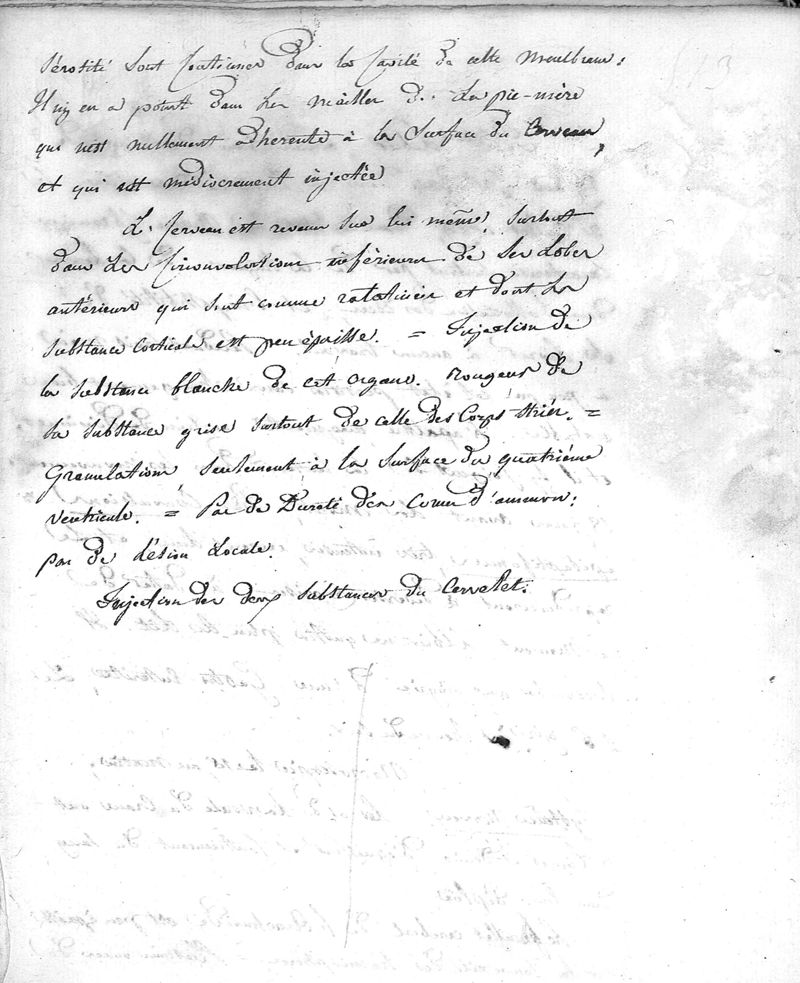 sérosité sont contenues dans la cavité de cette membrane;
Il n'y en a point dans les mailles de la pie-mère
qui n'est nullement adherente à la surface du cerveau,
et qui est médiocrement injectée
Le Cerveau est revenu sur lui même, surtout
dans les Circonvolutions inférieures de ses lobes
antérieurs qui sont comme ratatinées et dont la
substance corticale est peu épaisse. = Injection de
la substance blanche de cet organe. rougeur de
la substance grise surtout de celle des Corps striés. =
Granulations seulement à la surface du quatrième
ventricule. = Pas de Dureté des Cornes d'ammon;
pas de lésion Locale.
Injection des deux substances du Cervelet.